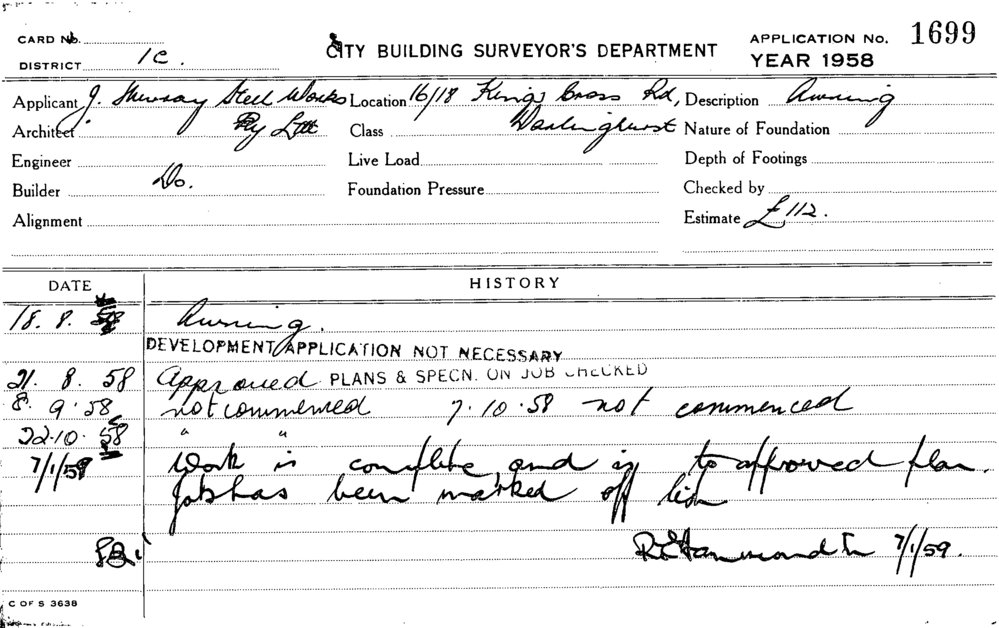 CARD No.
DISTRICT 1C.
CITY BUILDING SURVEYOR'S DEPARTMENT
APPLICATION No. 1699
YEAR 1958
Applicant J. Murray Steel Works Location 16/18 Kings Cross Rd, Description Awning
Architect Pty Ltd Class Darlinghurst Nature of Foundation
Engineer Live Load Depth of Footings
Builder Do. Foundation Pressure Checked by
Alignment Estimate £112.
DATE HISTORY
18. 8. 58 Awning.
DEVELOPMENT APPLICATION NOT NECESSARY
21. 8. 58 Approved PLANS & SPECN. ON JOB CHECKED
8. 9. 58 not commenced 7. 10. 58 not commenced
22.10. 58 " "
7/1/59 Work is complete and is to approved plan.
Job has been marked off list
7/1/59.
C OF S 3638